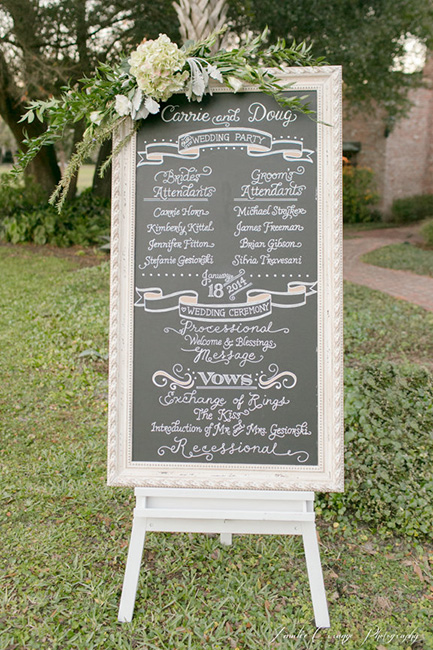 Carrie and Doug
THE WEDDING PARTY
Brides Attendants
Carrie Horn
Kimberly Kittel
Jennifer Fitton
Stefanie Gesiorski
Groom's Attendants
Michael Stryker
James Freeman
Brian Gibson
Silvia Travesani
January
18 2014
WEDDING CEREMONY
Processional
Welcome & Blessings
Message
VOWS
Exchange of Rings
The Kiss
Introduction of Mr. and Mrs. Gesiorski
Recessional
Photography